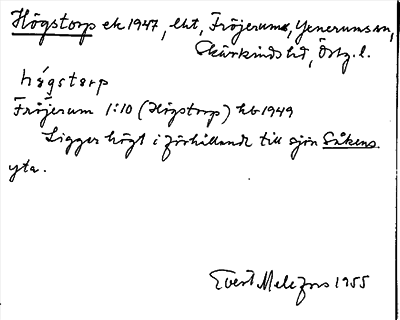 Högstorp ek 1947, lht, Fröjerum, Yxnerums sn,
Skärkinds hd, Östg. l.
högstorp
Fröjerum 1:10 (Högstorp) kb 1949
Ligger högt i förhållande till sjön Såkens
yta.
Evert Melefors 1955